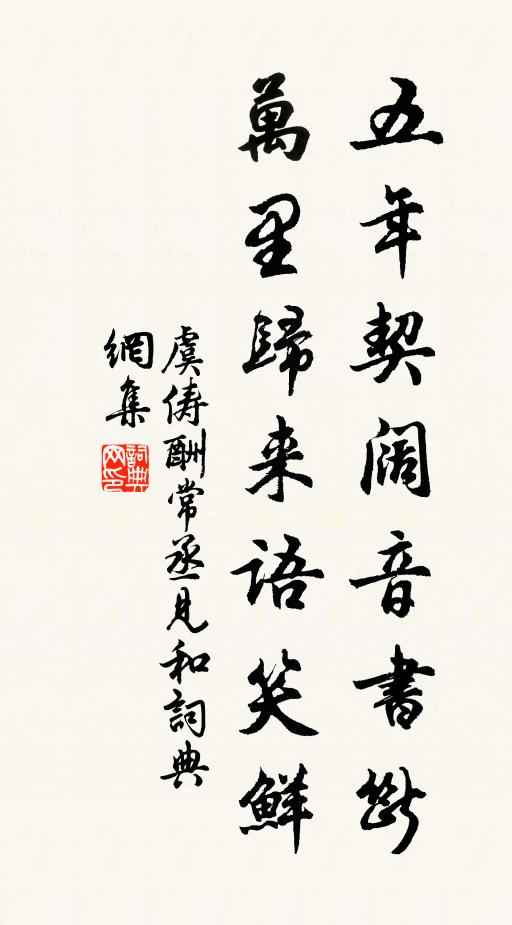 五年契阔音書斷
萬里歸来語笑鮮
虞儔酬常丞見和詞典
網集
詞典網印